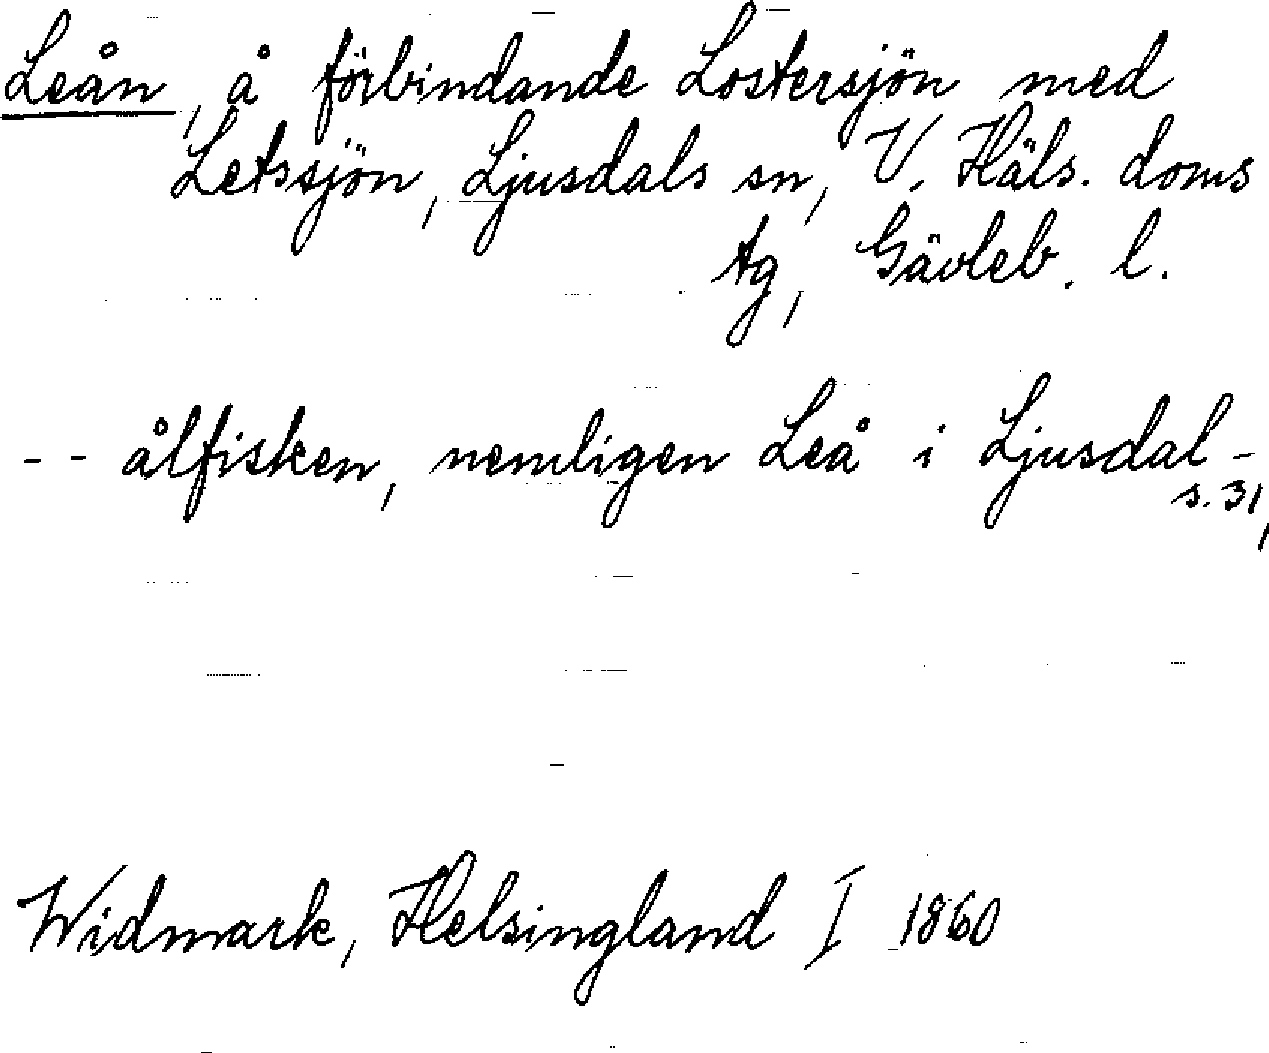 Leån, å förbindande Lostersjön med
Letssjön, Ljusdals sn, V. Häls. doms
tg, Gävleb. l.
-- ålfisken, nemligen Leå i Ljusdal -
s. 31,
Widmark, Helsingland I 1860